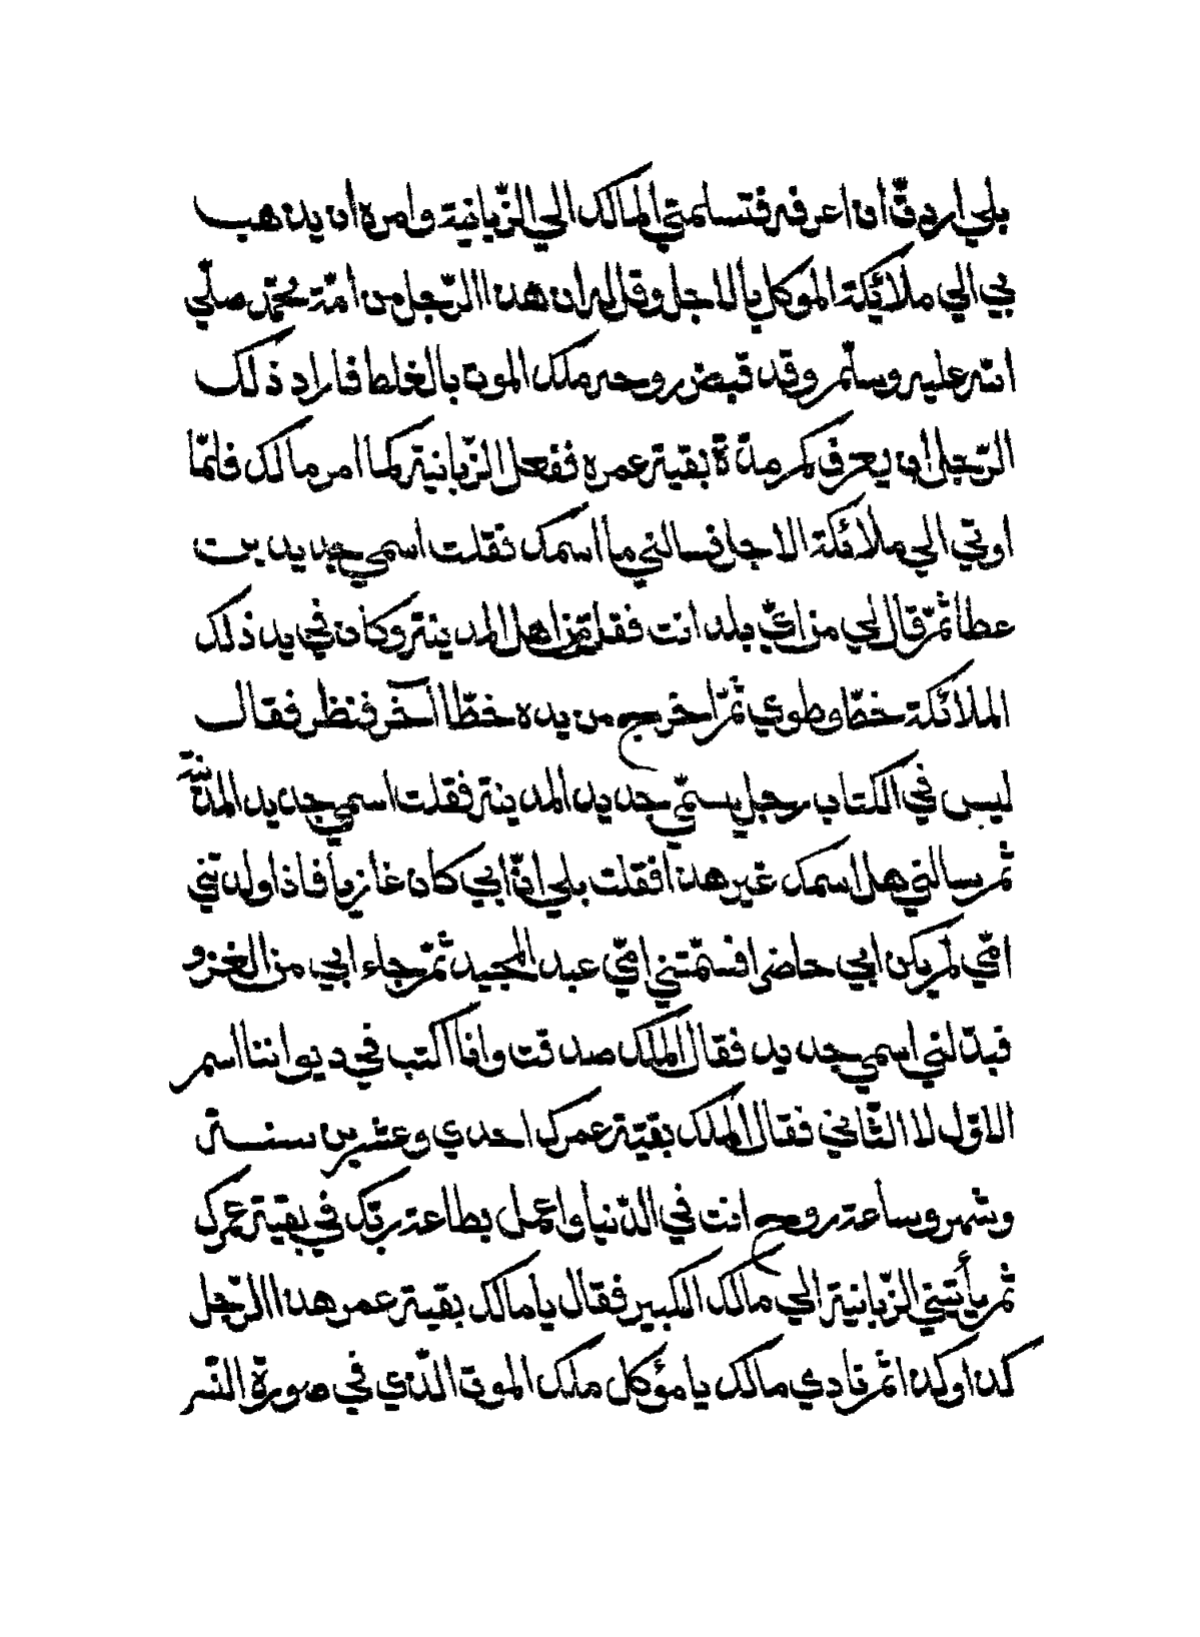 بلي اردت ان اعرفه فتسلمتي المالك الي الزبانية وامره ان يذهب
بي الي ملائكة الموكل بالاجل وقل له ان هذا الرّجل من امّة محمّد صلّي
الله عليه وسلّم وقد قبض روحه ملك الموت بالغلط فاراد ذلك
الرّجل ان يعرف كم مدّة بقية عمره ففعل الزّبانية كما امر مالك فلمّا
اوتي الي ملائكة الاجل فسالني ما اسمك فقلت اسمي جديد بن
عطا ثمّ قال لي من ايّ بلد انت فقلت من اهل المدينة وكان في يد ذلك
الملائكة خطّا وطوي ثمّ اخرج من يده خطّا آخر فنظر فقال
ليس في الكتاب رجل يسمّي جديد المدينة فقلت اسمي جديد المدينة
ثم سالني هل اسمك غير هذا فقلت بلي انّ ابي كان غازيا فاذا ولدتني
امّي لم يكن ابي حاضرا فسمّتني امّي عبد المجيد ثمّ جاء ابي من الغزو
فبدّلني اسمي جديد فقال الملك صدقت وانا اكتب في ديواننا اسم
الاوّل لا الثّاني فقال الملك بقيّة عمرك احدي وعشرين سنة
وشهر وساعة روح انت في الدّنيا واعمل بطاعة ربّك في بقيّة عمرك
ثم يأتيني الزّبانية الي مالك الكبير فقال يا مالك بقية عمر هذا الرّجل
كذا وكذا ثمّ نادي مالك يا مؤكل ملك الموت الّذي في صورة النّسر